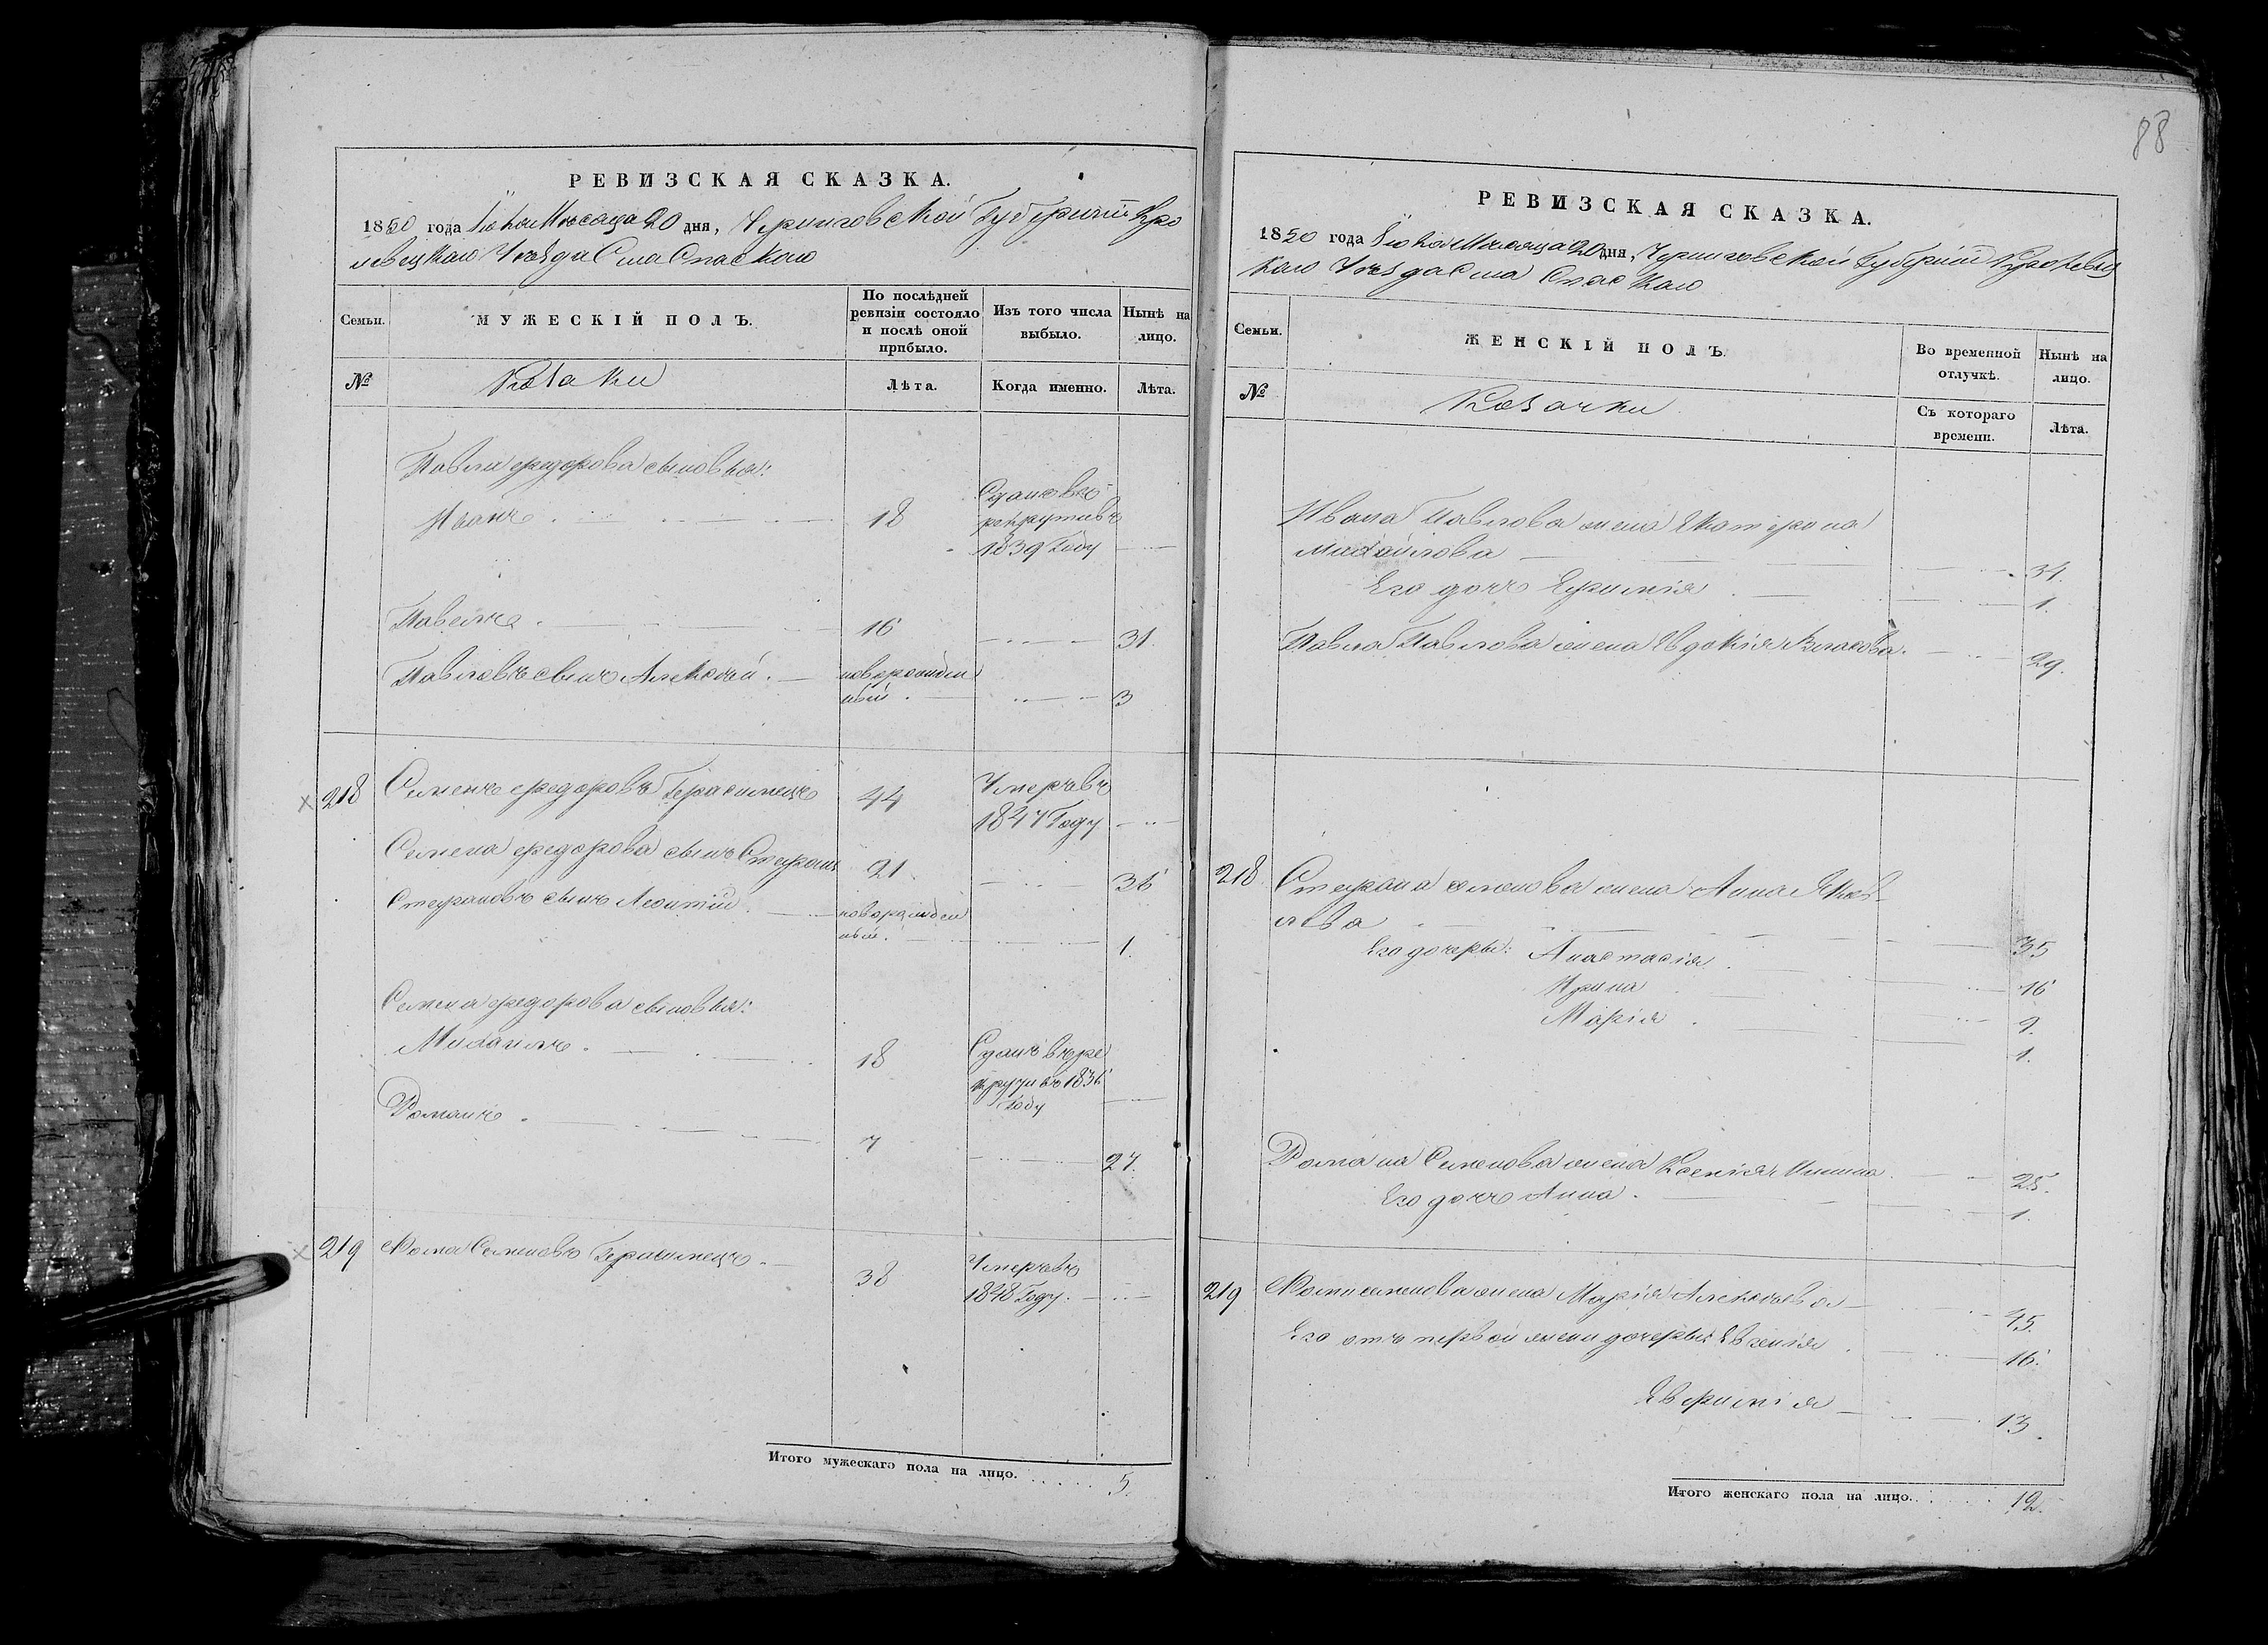 РЕВИЗСКАЯ СКАЗКА.
1850 года Июня Месяца 20 дня, Черниговской Губерніи Кро
левецкаго Уезда Села Спаскаго
Семьи.
МУЖЕСКІЙ ПОЛЪ.
По послѣдней
ревизіи состояло
и послѣ оной
прибыло.
Изъ того числа
выбыло.
Нынѣ на
лицо.
№
Козаки
Лѣта.
Когда именно.
Лѣта.
Павла Федорова сыновья:
Иванъ
18
рекруты въ
1839 Году
Павелъ
16
31.
Павловъ сынъ Алексей
новорожден
ный
3
218
Сименъ Федоровъ Герасимецъ
44
Умеръ въ
1847 Году
Симена Федорова сынъ Стефанъ
21
36
Стефановъ сынъ Леонтий
новорожден
ный.
1.
Симена Федорова сыновья:
Михаилъ
18
Сданъ въ ре
круты въ 1836
Году
Романъ
7
27.
219
Фома Сименовъ Герасимецъ
38
Умеръ въ
1848 Году.
Итого мужескаго пола на лицо. 5.
88
РЕВИЗСКАЯ СКАЗКА.
1850 года Июня Месяца 20 дня, Черниговской Губерніи Кролевец
каго Уезда Села Спаскаго
Семьи.
ЖЕНСКІЙ ПОЛЪ.
Во временной
отлучкѣ.
Нынѣ на
лицо.
№
Козачки
Съ котораго
времени.
Лѣта.
Ивана Павлова жена Екатерина
Михайлова
34.
Его дочь Ефимія
1.
Павла Павлова жена Евдокія Власова
29.
218
Стефана Симонова жена Анна Яков-
лева
35
Его дочеры: Анастасія
16
Ирина
9.
Марія
1.
Романа Сименова жена Ксенія Минина
25.
Его дочь Анна.
1.
219
Фомы Сименова жена Марія Алексеева
45.
Его отъ первой жены дочеры: Евгенія
16.
Евфимія
13.
Итого женскаго пола на лицо. 12.